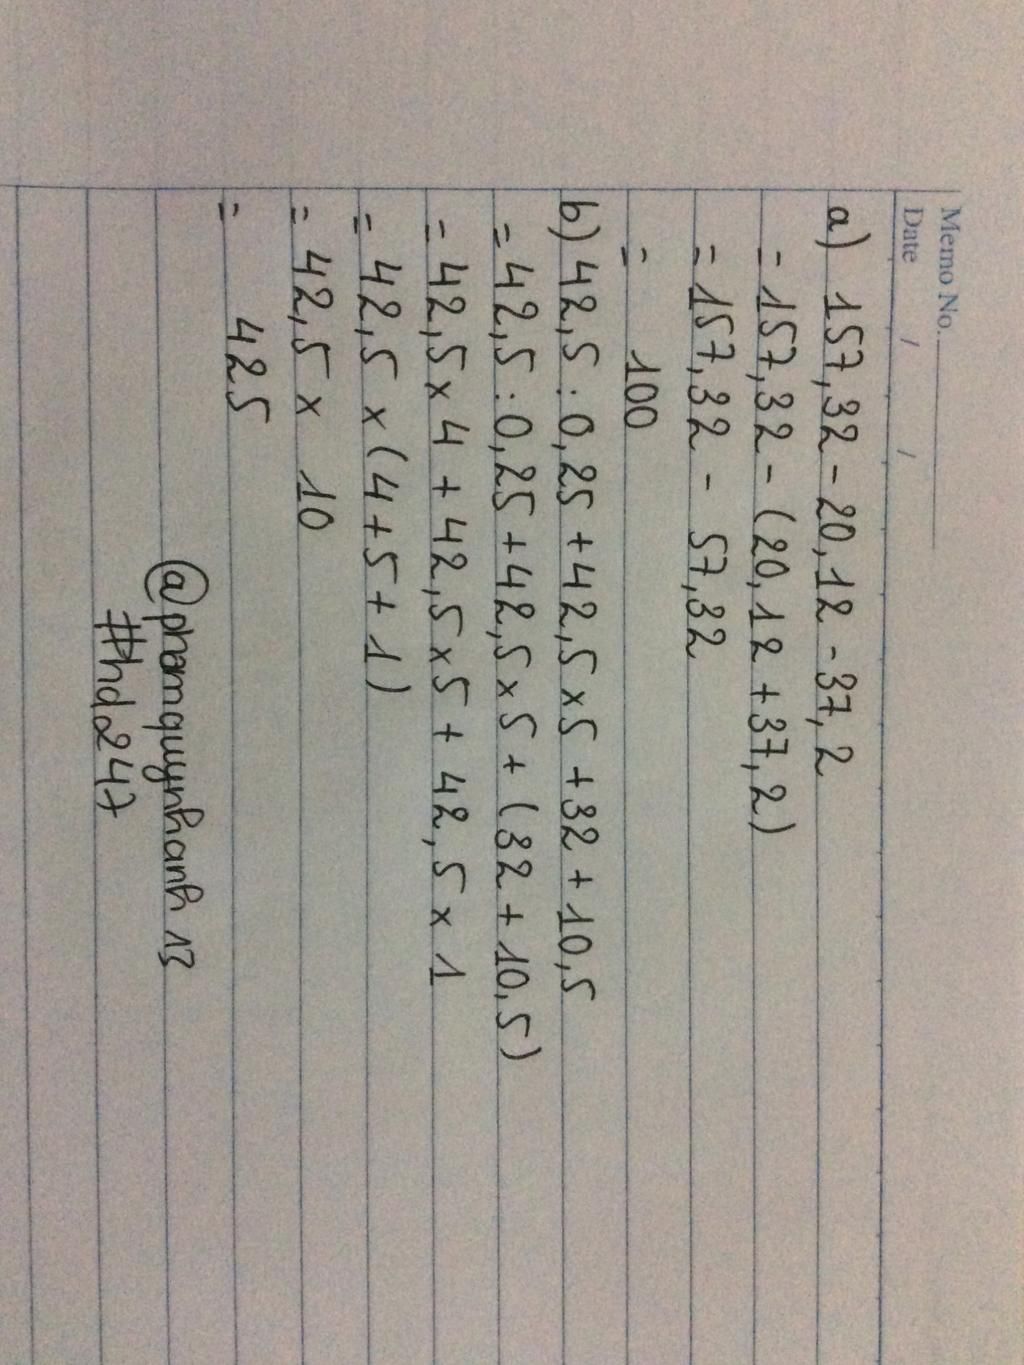 Memo No.
Date / /
a) 157,32 - 20,12 - 37,2
= 157,32 - (20,12 + 37,2)
= 157,32 - 57,32
= 100
b) 42,5 : 0,25 + 42,5 x 5 + 32 + 10,5
= 42,5 : 0,25 + 42,5 x 5 + (32 + 10,5)
= 42,5 x 4 + 42,5 x 5 + 42,5 x 1
= 42,5 x (4 + 5 + 1)
= 42,5 x 10
= 425
@phamquynhanh13
#hd247